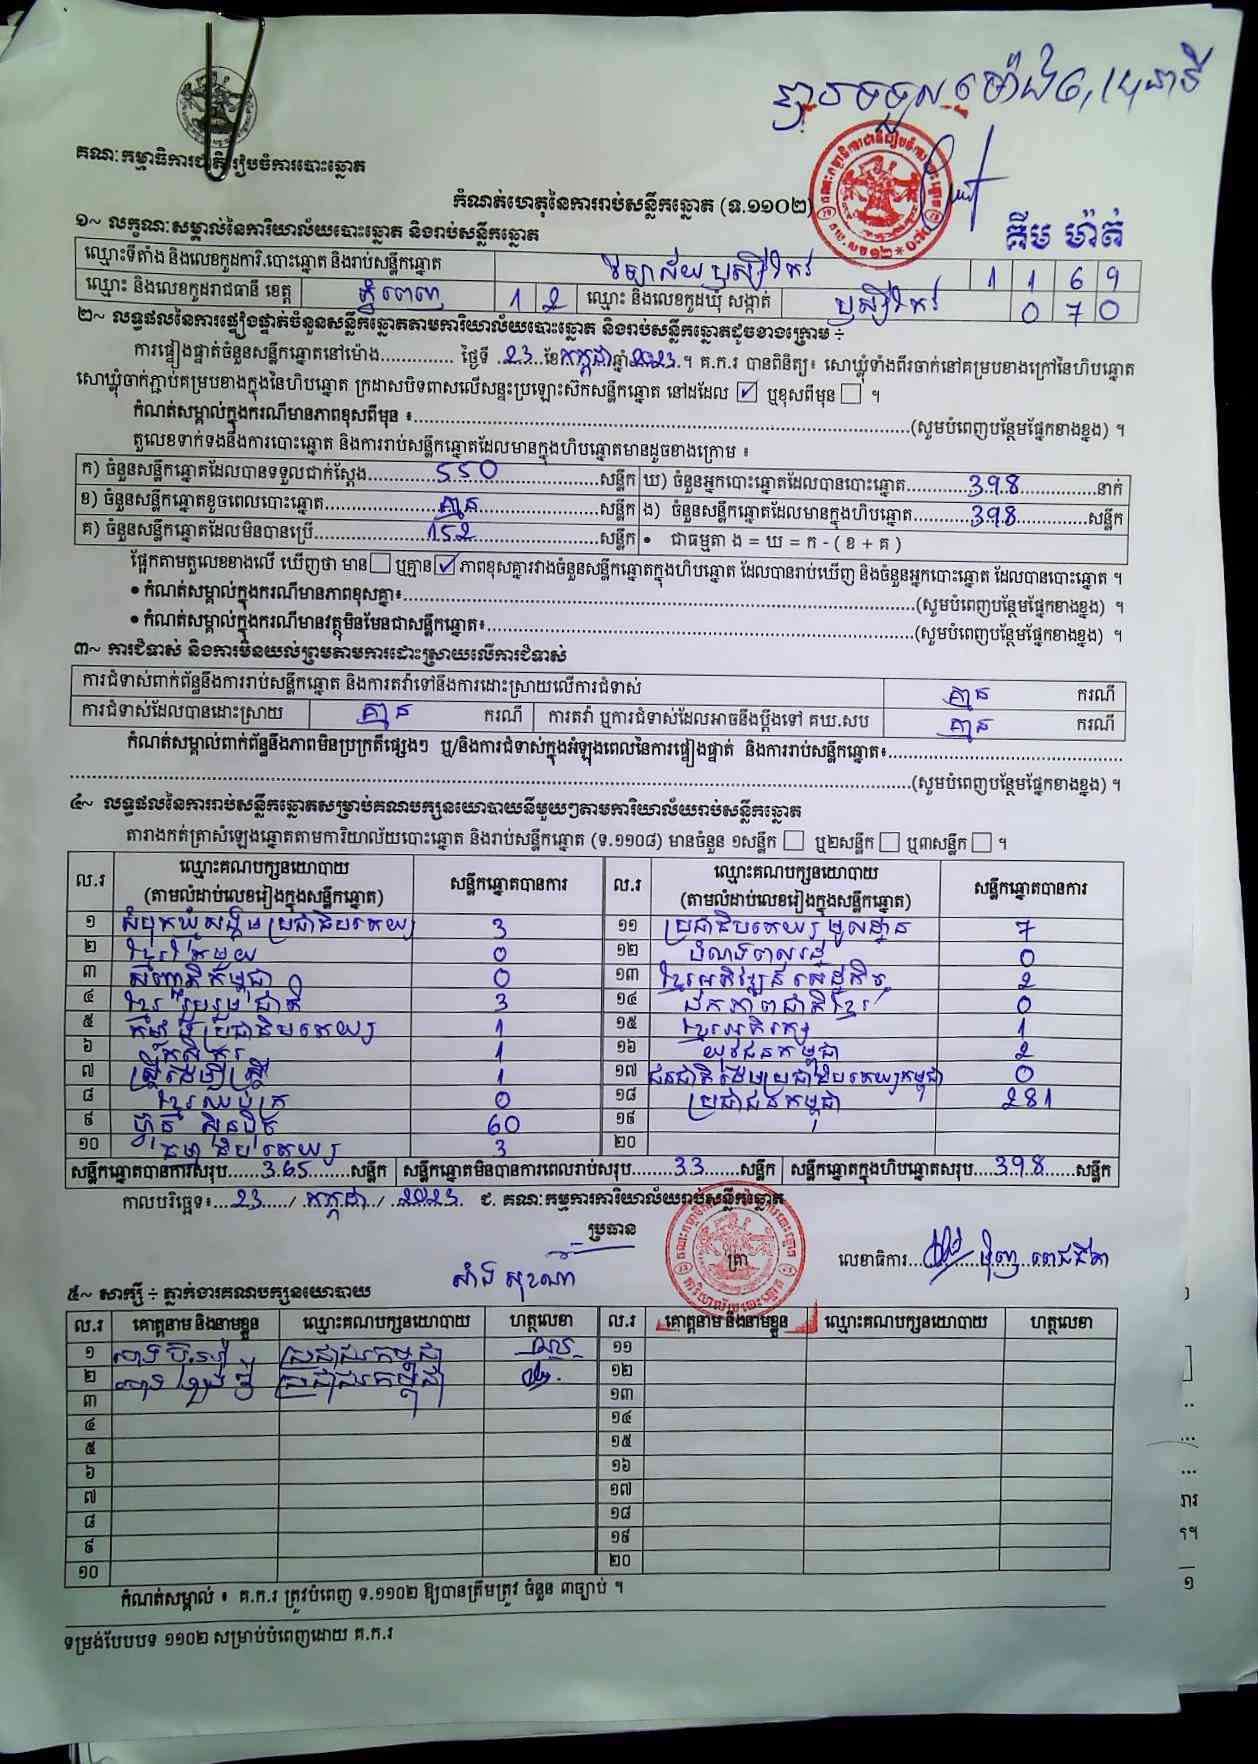 បានទទួល ម៉ោង
គណៈកម្មាធិការជាតិរៀបចំការបោះឆ្នោត
កំណត់ហេតុនៃការរាប់សន្លឹកឆ្នោត (ទ.១១០២)
គីម ម៉ាត់
១~ លក្ខណៈសម្គាល់នៃការិយាល័យបោះឆ្នោត និងរាប់សន្លឹកឆ្នោត
ឈ្មោះទីតាំង និងលេខកូដការិ.បោះឆ្នោត និងរាប់សន្លឹកឆ្នោត វិទ្យាល័យឫស្សីកែវ 1 1 6 9
ឈ្មោះ និងលេខកូដរាជធានី ខេត្ត ភ្នំពេញ 1 2 ឈ្មោះ និងលេខកូដឃុំ សង្កាត់ ឫស្សីកែវ 0 7 0
២~ លទ្ធផលនៃការផ្ទៀងផ្ទាត់ចំនួនសន្លឹកឆ្នោតតាមការិយាល័យបោះឆ្នោត និងរាប់សន្លឹកឆ្នោតដូចខាងក្រោម ÷
ការផ្ទៀងផ្ទាត់ចំនួនសន្លឹកឆ្នោតនៅម៉ោង.............. ថ្ងៃទី ..23.. ខែ កក្កដា ឆ្នាំ 2023 ។ គ.ក.រ បានពិនិត្យ៖ សោឃ្លុំទាំងពីរចាក់នៅគម្របខាងក្រៅនៃហិបឆ្នោត
សោឃ្លុំចាក់ភ្ជាប់គម្របខាងក្នុងនៃហិបឆ្នោត ក្រដាសបិទពាសលើសន្ទះប្រឡោះស៊កសន្លឹកឆ្នោត នៅដដែល ☑ ឬខុសពីមុន ☐ ។
កំណត់សម្គាល់ក្នុងករណីមានភាពខុសពីមុន ៖..........(សូមបំពេញបន្ថែមផ្នែកខាងខ្នង) ។
តួលេខទាក់ទងនឹងការបោះឆ្នោត និងការរាប់សន្លឹកឆ្នោតដែលមានក្នុងហិបឆ្នោតមានដូចខាងក្រោម ៖
ក) ចំនួនសន្លឹកឆ្នោតដែលបានទទួលជាក់ស្តែង.....550.....សន្លឹក ឃ) ចំនួនអ្នកបោះឆ្នោតដែលបានបោះឆ្នោត.....398.....នាក់
ខ) ចំនួនសន្លឹកឆ្នោតខូចពេលបោះឆ្នោត.....គ្មាន.....សន្លឹក ង) ចំនួនសន្លឹកឆ្នោតដែលមានក្នុងហិបឆ្នោត.....398.....សន្លឹក
គ) ចំនួនសន្លឹកឆ្នោតដែលមិនបានប្រើ.....152.....សន្លឹក • ជាធម្មតា ង = ឃ = ក - ( ខ + គ )
ផ្អែកតាមតួលេខខាងលើ ឃើញថា មាន ☐ ឬគ្មាន ☑ ភាពខុសគ្នារវាងចំនួនសន្លឹកឆ្នោតក្នុងហិបឆ្នោត ដែលបានរាប់ឃើញ និងចំនួនអ្នកបោះឆ្នោត ដែលបានបោះឆ្នោត ។
• កំណត់សម្គាល់ក្នុងករណីមានភាពខុសគ្នា៖..........(សូមបំពេញបន្ថែមផ្នែកខាងខ្នង) ។
• កំណត់សម្គាល់ក្នុងករណីមានវត្ថុមិនមែនជាសន្លឹកឆ្នោត៖..........(សូមបំពេញបន្ថែមផ្នែកខាងខ្នង) ។
៣~ ការជំទាស់ និងការមិនយល់ព្រមតាមការដោះស្រាយលើការជំទាស់
ការជំទាស់ពាក់ព័ន្ធនឹងការរាប់សន្លឹកឆ្នោត និងការតវ៉ាទៅនឹងការដោះស្រាយលើការជំទាស់ គ្មាន ករណី
ការជំទាស់ដែលបានដោះស្រាយ គ្មាន ករណី ការតវ៉ា ឬការជំទាស់ដែលអាចនឹងប្តឹងទៅ គឃ.សប គ្មាន ករណី
កំណត់សម្គាល់ពាក់ព័ន្ធនឹងភាពមិនប្រក្រតីផ្សេងៗ ឬ/និងការជំទាស់ក្នុងអំឡុងពេលនៃការផ្ទៀងផ្ទាត់ និងការរាប់សន្លឹកឆ្នោត៖..........
..........(សូមបំពេញបន្ថែមផ្នែកខាងខ្នង) ។
៤~ លទ្ធផលនៃការរាប់សន្លឹកឆ្នោតសម្រាប់គណបក្សនយោបាយនីមួយៗតាមការិយាល័យរាប់សន្លឹកឆ្នោត
តារាងកត់ត្រាសំឡេងឆ្នោតតាមការិយាល័យបោះឆ្នោត និងរាប់សន្លឹកឆ្នោត (ទ.១១០៨) មានចំនួន ១សន្លឹក ☐ ឬ២សន្លឹក ☐ ឬ៣សន្លឹក ☐ ។
ល.រ ឈ្មោះគណបក្សនយោបាយ (តាមលំដាប់លេខរៀងក្នុងសន្លឹកឆ្នោត) សន្លឹកឆ្នោតបានការ ល.រ ឈ្មោះគណបក្សនយោបាយ (តាមលំដាប់លេខរៀងក្នុងសន្លឹកឆ្នោត) សន្លឹកឆ្នោតបានការ
១ សំបុកឃ្មុំសង្គមប្រជាធិបតេយ្យ 3 ១១ ប្រជាធិបតេយ្យមូលដ្ឋាន 7
២ ខ្មែរតែមួយ 0 ១២ បំណងពលរដ្ឋ 0
៣ សញ្ជាតិកម្ពុជា 0 ១៣ ខ្មែរអភិវឌ្ឍន៍សេដ្ឋកិច្ច 2
៤ ខ្មែររួបរួមជាតិ 3 ១៤ ឯកភាពជាតិខ្មែរ 0
៥ កម្លាំងប្រជាធិបតេយ្យ 1 ១៥ ខ្មែរអភិរក្ស 1
៦ កសិករ 1 ១៦ យុវជនកម្ពុជា 2
៧ ស្ត្រីដើម្បីស្ត្រី 1 ១៧ ជនជាតិដើមប្រជាធិបតេយ្យកម្ពុជា 0
៨ ខ្មែរឈប់ក្រ 0 ១៨ ប្រជាជនកម្ពុជា 281
៩ ហ៊្វុនស៊ិនប៉ិច 60 ១៩
១០ ធម្មាធិបតេយ្យ 3 ២០
សន្លឹកឆ្នោតបានការសរុប.....365.....សន្លឹក សន្លឹកឆ្នោតមិនបានការពេលរាប់សរុប.....33.....សន្លឹក សន្លឹកឆ្នោតក្នុងហិបឆ្នោតសរុប.....398.....សន្លឹក
កាលបរិច្ឆេទ៖...23.../...កក្កដា.../...2023. ជ. គណៈកម្មការការិយាល័យរាប់សន្លឹកឆ្នោត
ប្រធាន
ត្រា
លេខាធិការ
សាំង សុខណា
៥~ សាក្សី ÷ ភ្នាក់ងារគណបក្សនយោបាយ
ល.រ គោត្តនាម និងនាមខ្លួន ឈ្មោះគណបក្សនយោបាយ ហត្ថលេខា ល.រ គោត្តនាម និងនាមខ្លួន ឈ្មោះគណបក្សនយោបាយ ហត្ថលេខា
១ ប្រជាជនកម្ពុជា ១១
២ ប្រជាជនកម្ពុជា ១២
៣ ១៣
៤ ១៤
៥ ១៥
៦ ១៦
៧ ១៧
៨ ១៨
៩ ១៩
១០ ២០
កំណត់សម្គាល់ ៖ គ.ក.រ ត្រូវបំពេញ ទ.១១០២ ឱ្យបានត្រឹមត្រូវ ចំនួន ៣ច្បាប់ ។
ទម្រង់បែបបទ ១១០២ សម្រាប់បំពេញដោយ គ.ក.រ